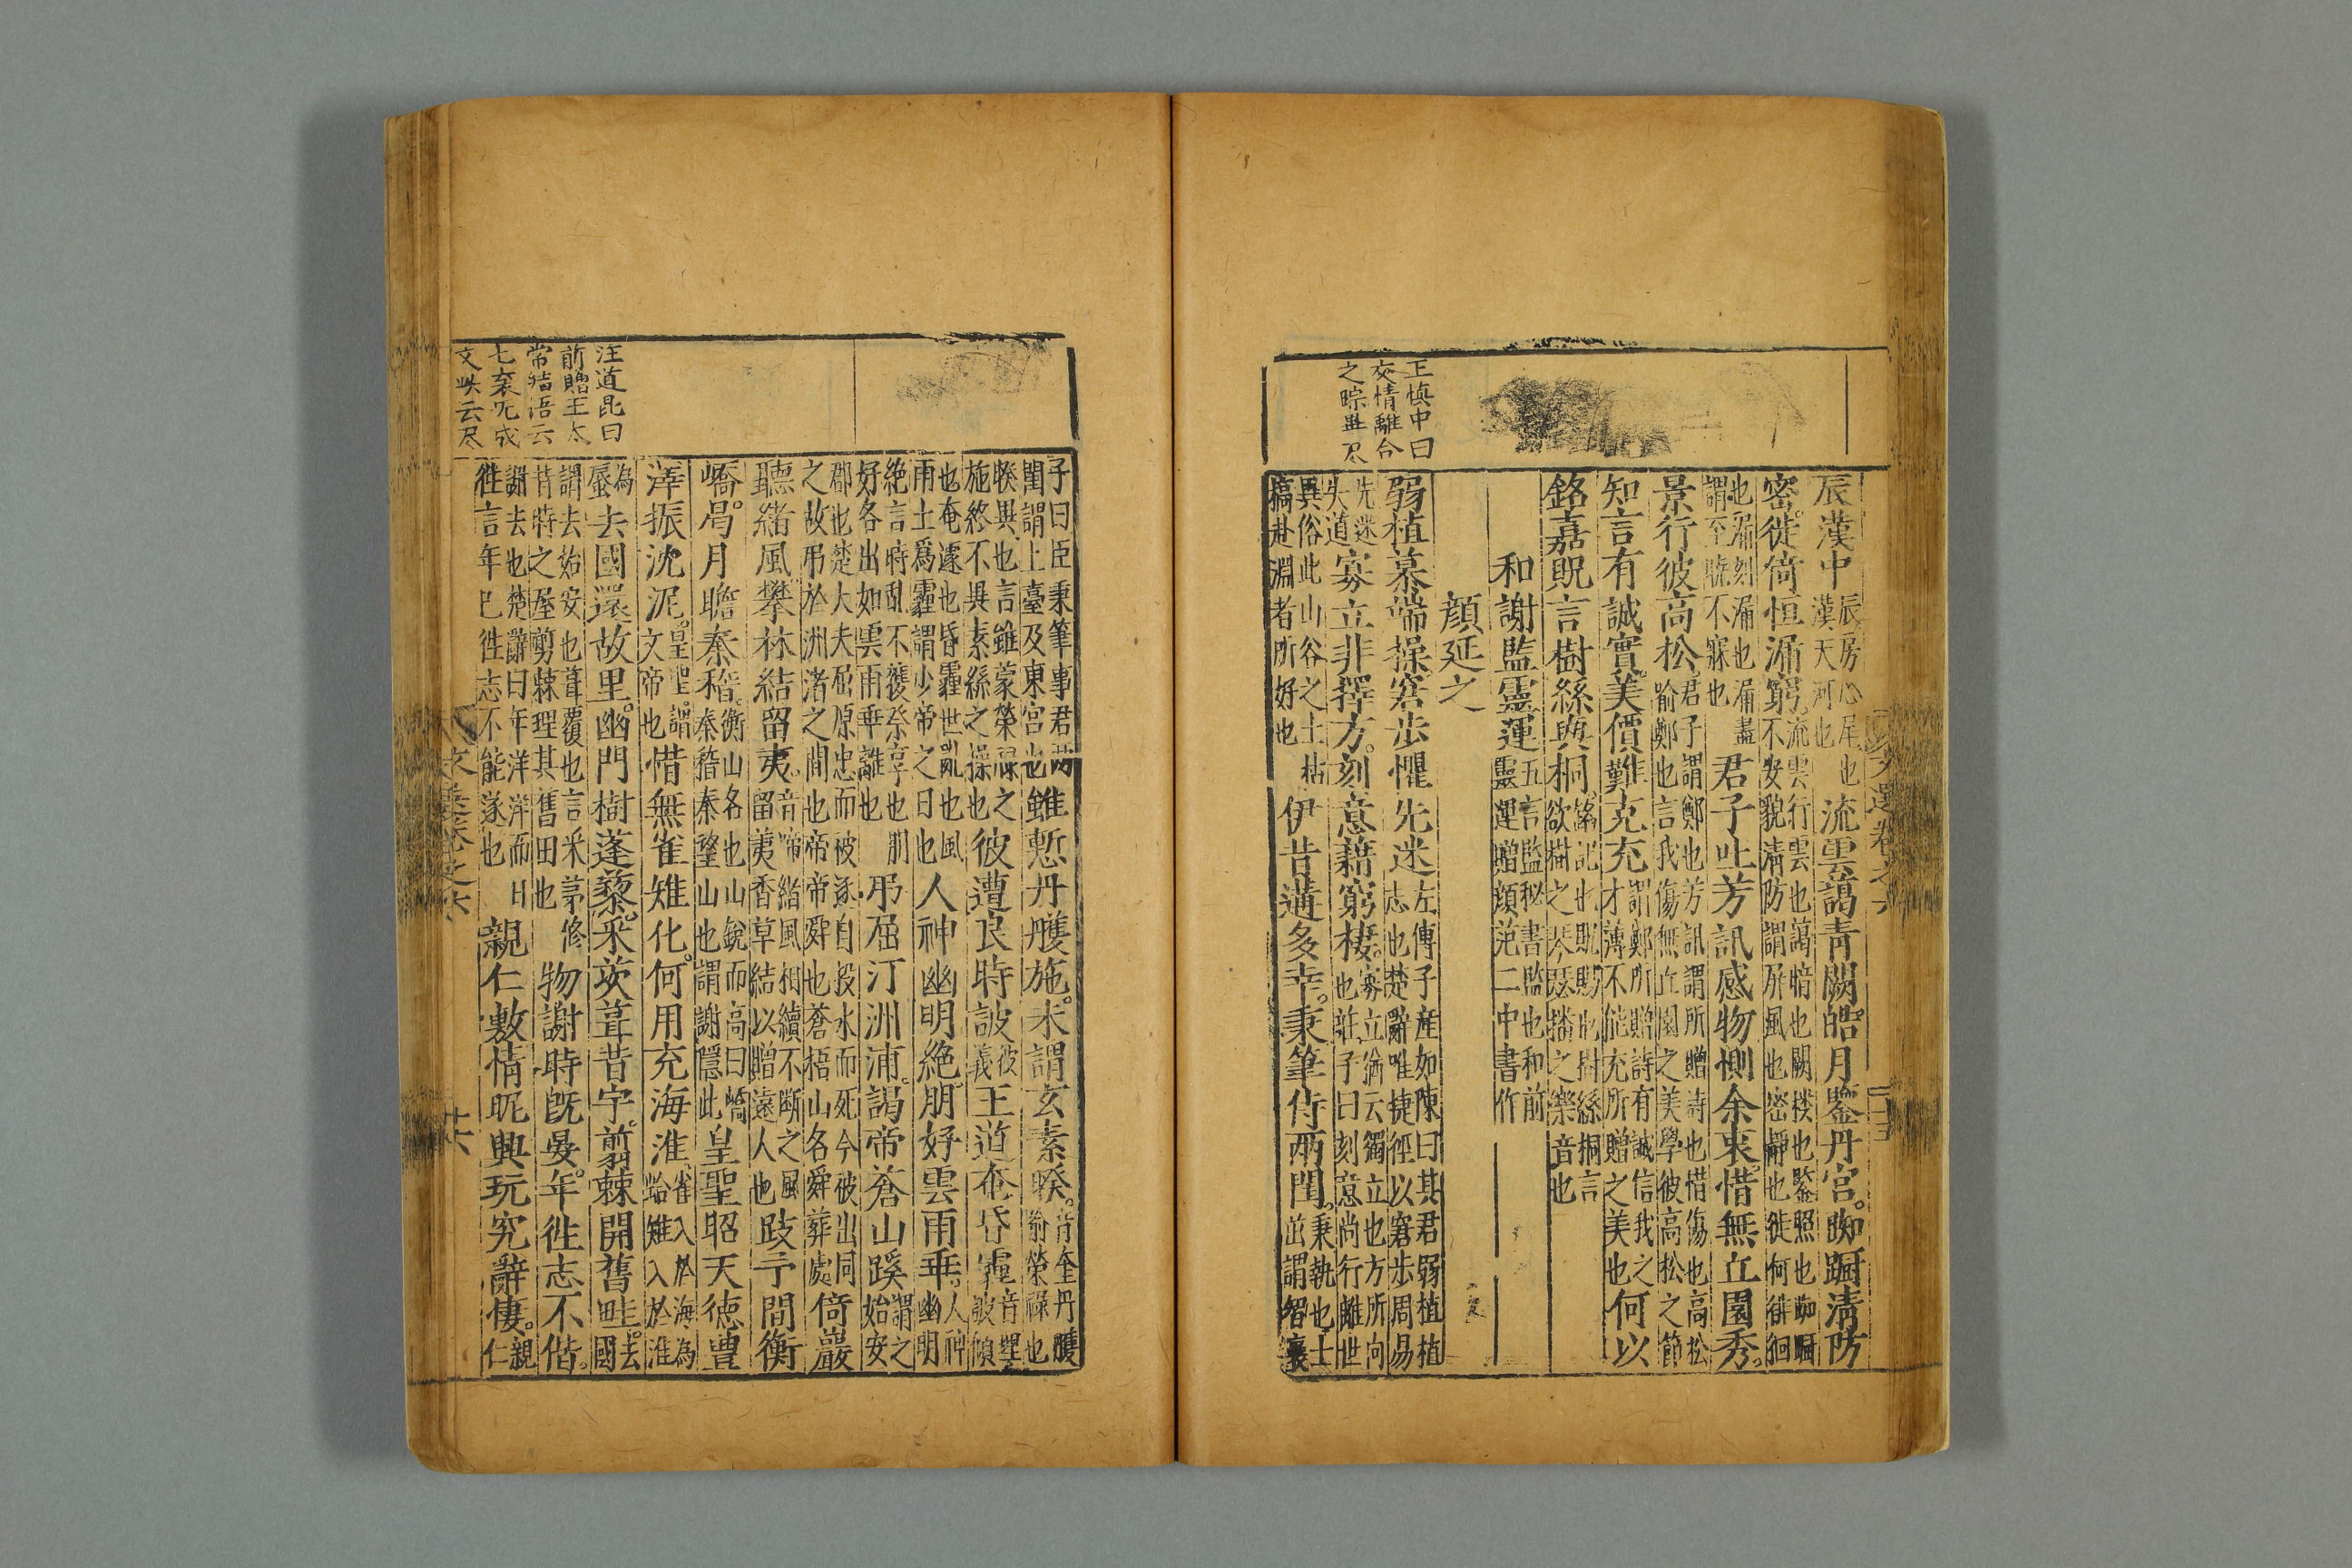 王慎中曰
交情離合
之踪畢尽
辰漢中辰房心尾也漢天河也流雲藹青闕皓月鑒丹宮踟蹰清防
密徙倚恒漏窮流雲行雲也藹暗也闕楼也鑒照也踟蹰不安貌清防謂屏風也密靜也徙何徘徊
也漏刻漏也漏盡謂至曉不寐也君子吐芳訊感物惻余衷惜無丘園秀
景行彼高松君子謂鄭也芳訊謂所贈詩也惜傷也高松喻鄭也言我傷無丘園之美學彼高松之節
知言有誠實美價難克充謂鄭所贈詩有誠信我之才薄不能充所贈之美也何以
銘嘉貺言樹絲與桐銘記也貺賜也樹絲桐言欲樹之琴瑟播之樂音也
和謝監靈運五言監秘書監也和前靈運贈顔范二中書作
顔延之
弱植慕端操窘步懼先迷左傳子産如陳曰其君弱植植志也楚辭唯捷徑以窘步周易
先迷失道寡立非擇方刻意藉窮棲寡立猶云獨立也方所向也莊子曰刻意尚行離世
異俗此山谷之士枯槁赴淵者所好也伊昔遘多幸秉筆侍兩閨秉執也士茁謂智襄
子曰臣秉筆事君兩閨謂上臺及東宮也雖慙丹雘施未謂玄素睽音奎丹雘喻榮祿也
睽異也言雖蒙榮祿之施終不異素絲之操也彼遭良時詖彼義王道奄昏霾音埋詖傾
也奄遽也昏霾世亂也風雨土爲霾謂少帝之日也人神幽明絶朋好雲雨乖人神幽明
絶言時亂不獲祭享也朋好各出如雲雨乖離也弔屈汀洲浦謁帝蒼山蹊謂之始安
郡也楚大夫屈原忠而被逐自投水而死今被出同之故弔於洲渚之間也帝帝舜也蒼梧山名舜葬處倚巖
聽緒風攀林結留夷音啼緒風相續不断之風留荑香草結以贈遠人也跂予間衡
嶠曷月瞻秦稽衡山名也山銳而高曰嶠秦稽秦望山也謂謝隱此皇聖昭天德豊
澤振沈泥皇聖謂文帝也惜無雀雉化何用充海淮雀入於海為蛤雉入於淮
為蜃去國還故里幽門樹蓬藜采茨葺昔宇翦棘開舊畦去國
謂去始安也葺覆也言采茅修昔時之屋剪棘理其舊田也物謝時既晏年徃志不偕
謝去也楚辭曰年洋洋而日徃言年已徃志不能遂也親仁敷情昵興玩究辭悽親仁
汪道昆曰
前贈王太
常結語云
文選卷之六
廿六